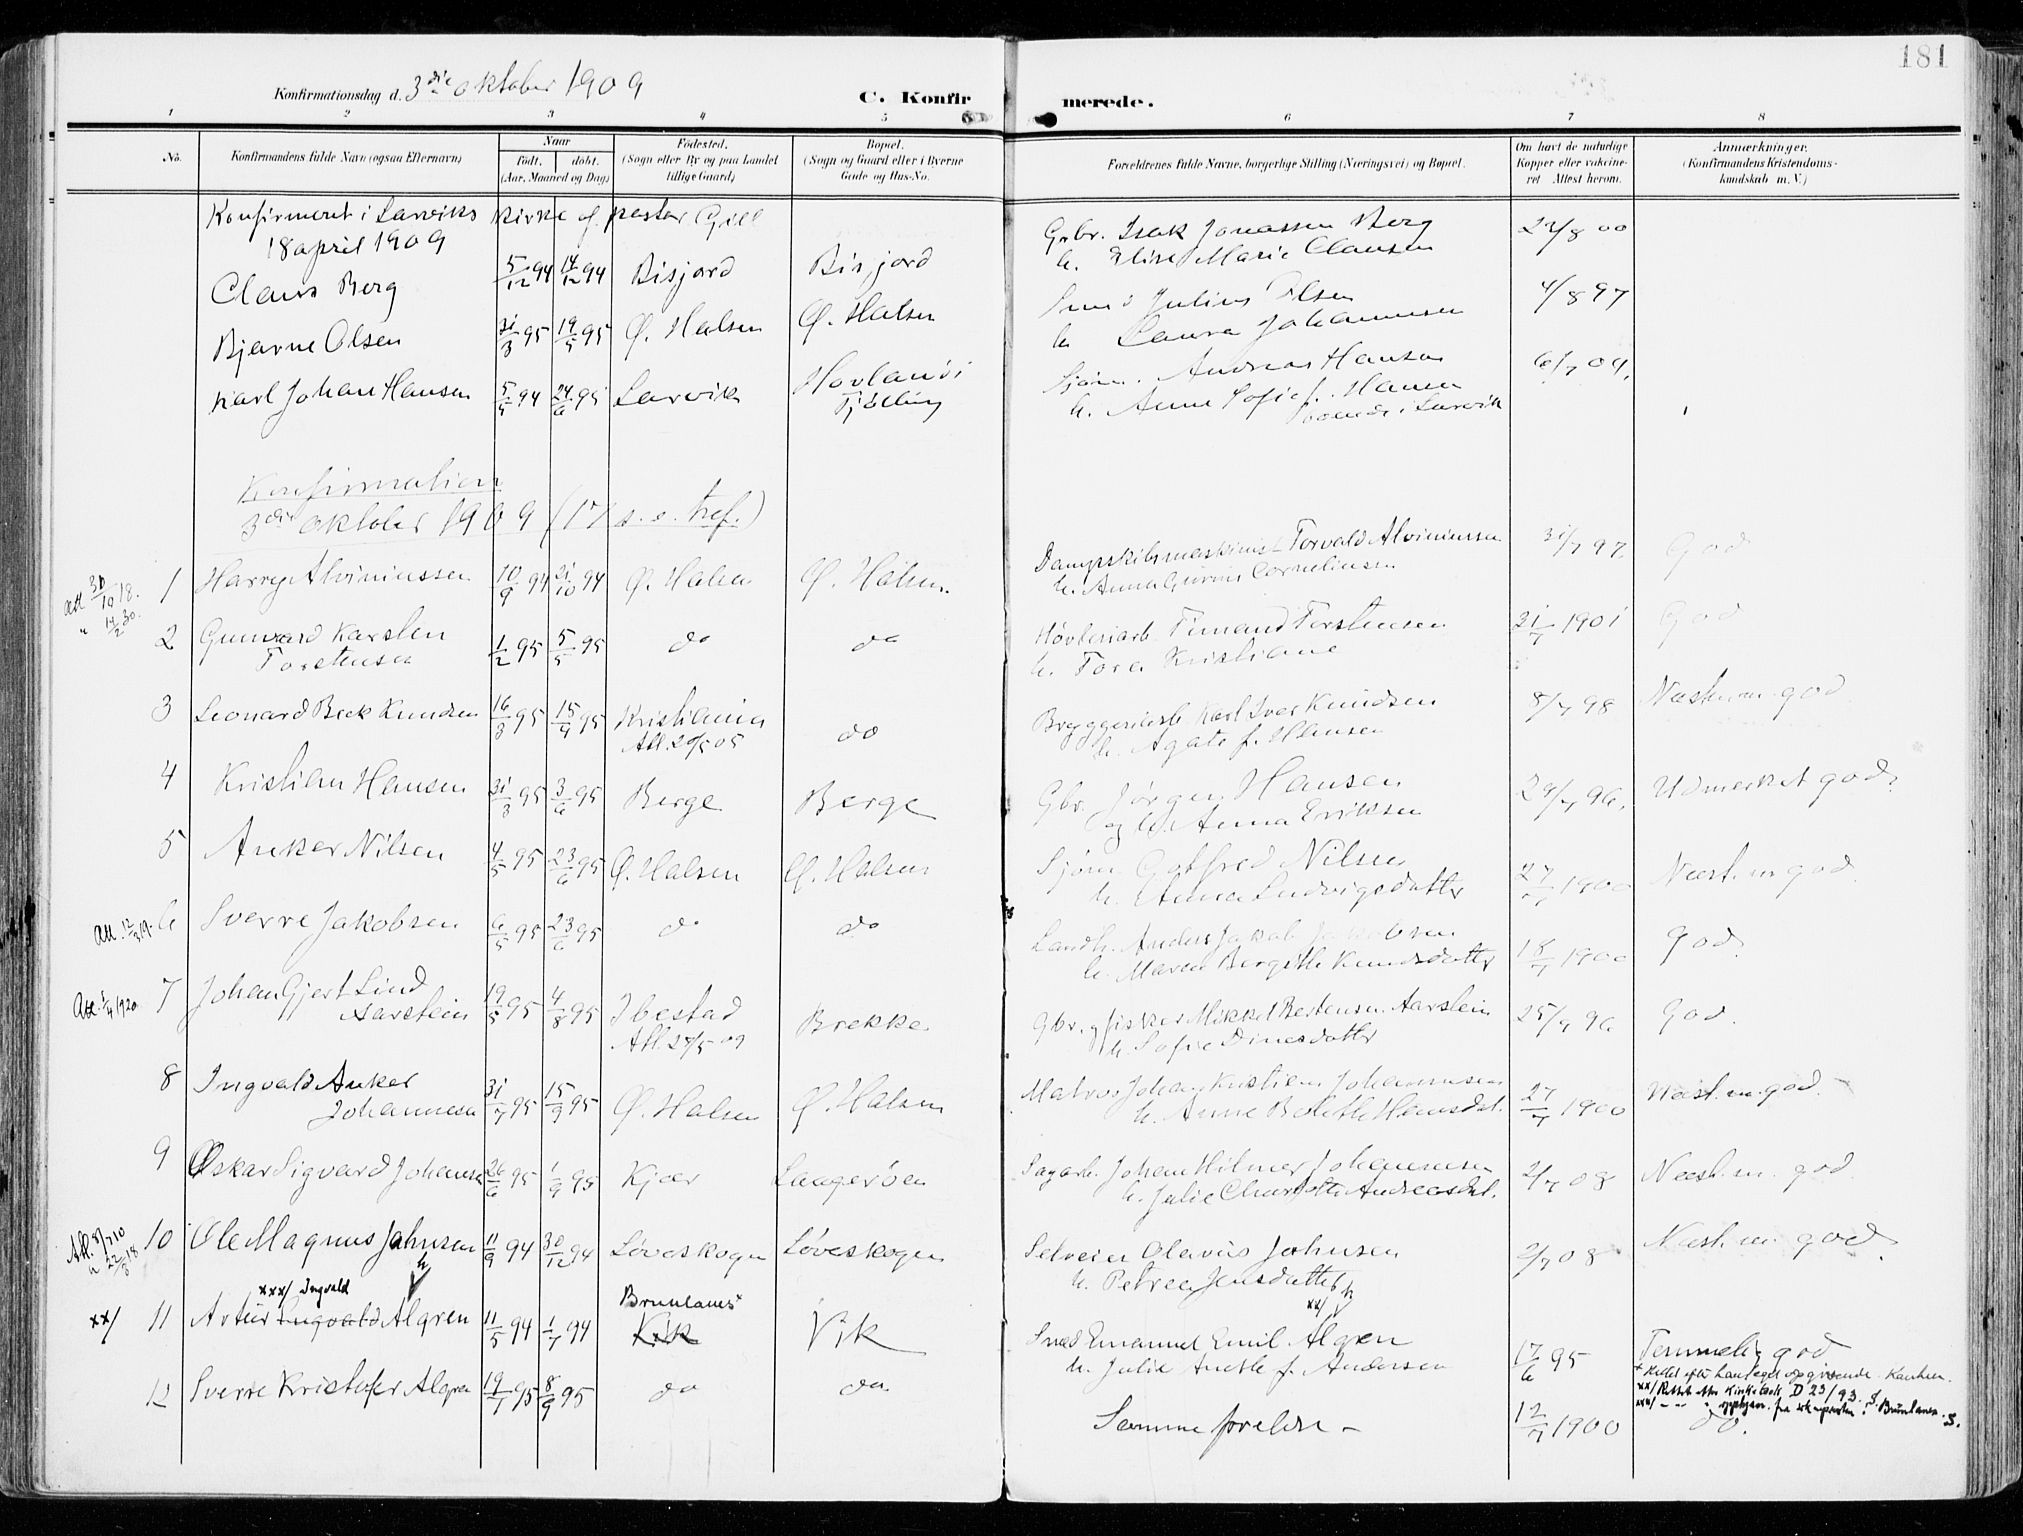 181
Konfirmationsdag d. 3die oktober 1909
C. Konfir merede.
1 2 3 4 5 6 7 8
No.
Konfirmandens fulde Navn (ogsaa Efternavn)
Naar
født. døbt.
(Aar, Maaned og Dag)
Fødested.
(Sogn eller By og paa Landet
tillige Gaard)
Bopæl.
(Sogn og Gaard eller i Byerne
Gade og Hus-No.
Forældrenes fulde Navne, borgerlige Stilling (Næringsvei) og Bopæl.
Om havt de naturlige
Kopper eller vakcine-
ret Attest herom.
Anmærkninger.
(Konfirmandens Kristendoms-
kundskab m. V.)
Konfirmeret i Larviks kirke af pastor Gill
18 april 1909
Claus Berg 5/12 94 14/12 94 Bisjord Bisjord
Gbr. Isak Jonassen Berg
h. Elise Marie Clausen
Bjarne Olsen 31/3 95 19/5 95 Ø. Halsen Ø. Halsen
Julius Olsen 4/8 97
h. Laura Johannesen
Karl Johan Hansen 5/5 94 24/6 95 Larvik
Tjølling
Sjøm. Andreas Hansen 6/7 09.
h. Anne Sofie f. Hansen
i Larvik
Konfirmation
3die oktober 1909 (17 s. e. tref.)
Att 30/10 18.
" 14/2 30.
1 Harry Alviniussen 10/9 94 21/10 94 Ø. Halsen Ø. Halsen.
Dampskibsmaskinist Torvald Alviniussen 31/7 97. God
h. Anna Corneliussen
2 Gunvard Karsten
Torstensen 1/2 95 5/5 95 do do
Høvleriarb. Torstensen 21/7 1901 God
h. Tora Kristiane
3 Leonard Beck Knudsen 16/3 95 15/9 95 Kristiania do
Att. 20/5 05
Bryggeriarb Karl Iver Knudsen 8/7 98 Næsten m. god
h. Agate f. Hansen
4 Kristian Hansen 31/3 95 3/6 95 Berge Berge
Gbr. Jørgen Hansen 29/7 96. Udmerket god.
og h. Anna Eriksen
5 Anker Nilsen 4/5 95 23/6 95 Ø. Halsen Ø. Halsen
Sjøm Gotfred Nilsen 27/7 1900 Næst. m god
h. Anna Ludvigsdatter
Att. 12/3 19.
6 Sverre Jakobsen 6/5 95 23/6 95 do do
Landh. Anders Jakob Jakobsen 18/7 1900 God.
h. Maren Bergithe Knudsdatter
Att. 1/4 1920
7 Johan Gjert Lind
Aarstein 19/5 95 4/8 95 Ibestad Brekke
Att. 28/5 09
Gbr. og fisker Mikkel Bertensen Aarstein 25/9 96 God.
h. Sofie Dinesdatter
8 Ingvald Anker
Johannesen 31/7 95 15/9 95 Ø. Halsen Ø. Halsen
Matros Johan Kristian Johannesen 27/7 1900 Næst. m. god
h. Anne Bolette Hansdat.
9 Oskar Sigvard Johansen 26/6 95 1/9 95 Kjær Langerøen
Sagarb. Johan Hilmer Johannesen 2/7 08 Næst. m. god
h. Julie Charlotte Andreasdat.
Att. 8/7 10
" 22/8 18
10 Ole Magnus Johnsen 11/9 94 30/12 94 Løveskogen Løveskogen
Selveier Olavus Johnsen 2/7 08 Næst. m god
h. Petrea Jensdatter
xxx/ Ingvald
xx/ 11 Artur Ingvald Algren 11/5 94 1/7 94 Brunlanes+ Vik Vik
xx/
Emanuel Emil Algren 17/6 95 Temmelig god
h. Julie Anette f. Andersen
+ Rettet efter hans eget opgivende.
xx/ Rettet efter Kirkebok D 23/93. S.
xxx/ " " " opplysn. fra sognepresten i Brunlanes. S.
12 Sverre Kristofer Algren 19/7 95 8/9 95 do do
Samme forældre - 12/7 1900 do.